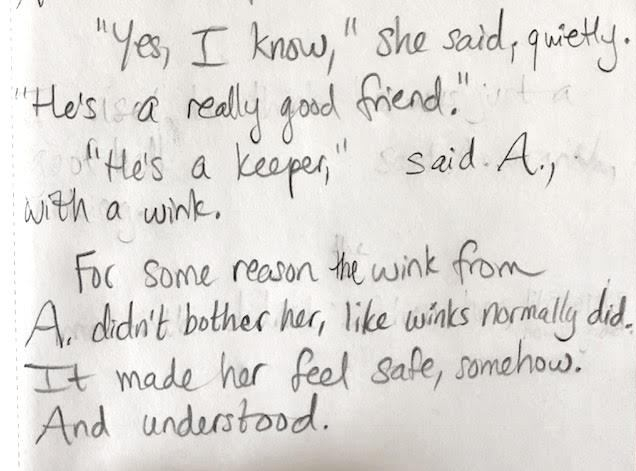 "Yes, I know," she said, quietly.
"He's a really good friend."
"He's a keeper," said A.,
with a wink.
For some reason the wink from
A. didn't bother her, like winks normally did.
It made her feel safe, somehow.
And understood.